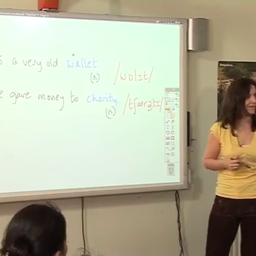 s a very old wallet
(n) /wɒlɪt/
e gave money to charity
(n) /tʃærɪti/